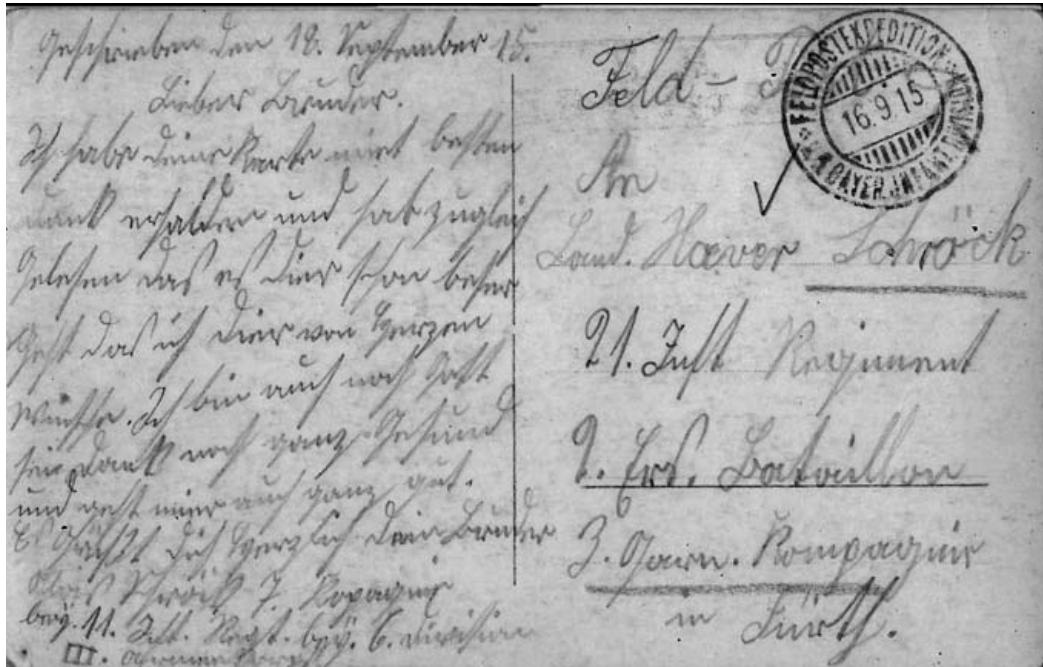 Geschrieben den 18. September 15.
Lieber Bruder.
Ich habe deine Karte mit besten
dank erhalden und hab zugleich
Gelesen das es dier schon besser
Geht das ich dier von Herzen
Wünsche. Ich bin auch noch Gott
sei dank noch ganz Gesund
und geht mier auch ganz gut.
Es Grüßt dich Herzlich dein Bruder
Schröck 7. Kopagnie
bay. 11. Inft. Regt. bay. 6. Division
III. Armeekorps
Feld-
FELDPOSTEXPEDITION
16.9.15
BAYER. INFANT.
An
Land. Xaver Schröck
21. Inft Regiment
2. Ers. Bataillon
3. Garn. Kompagnie
in Fürth.